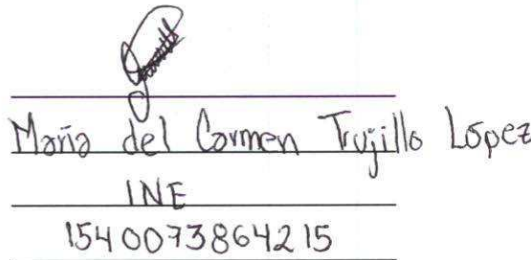 María del Carmen Trujillo López
INE
1540073864215